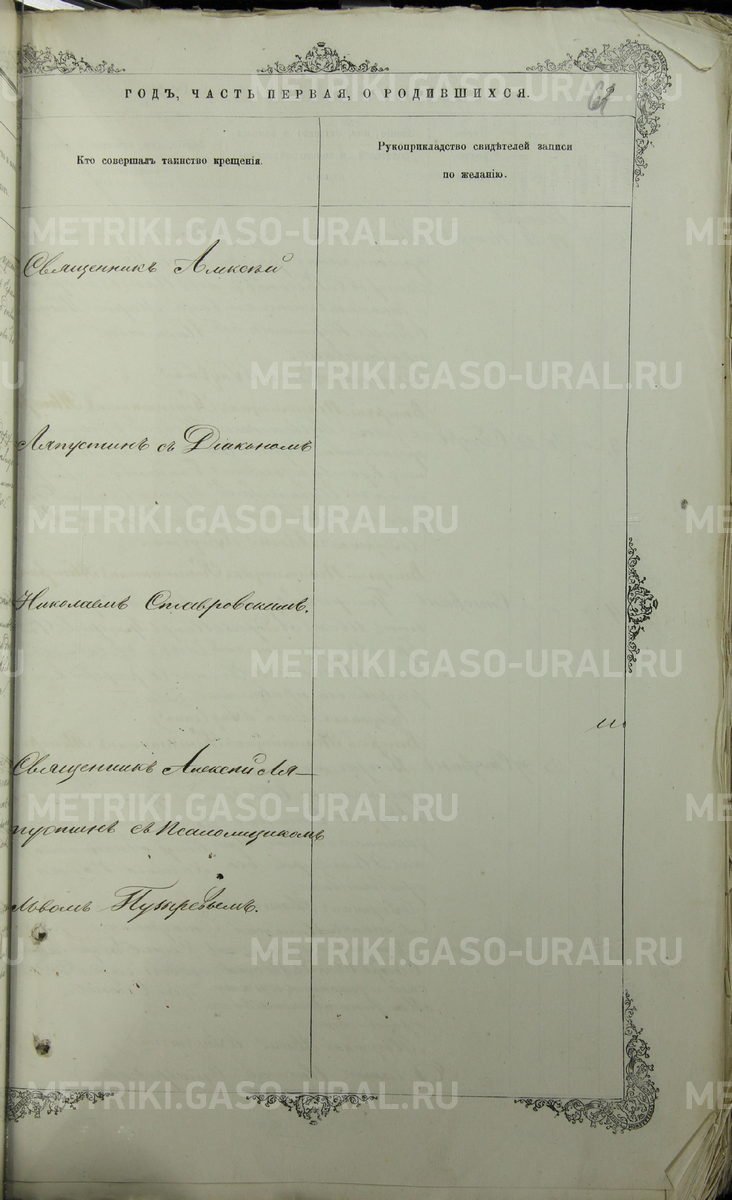 ГОДЪ, ЧАСТЬ ПЕРВАЯ, О РОДИВШИХСЯ.
Кто совершалъ таинство крещенія.
Рукоприкладство свидѣтелей записи
по желанію.
Священникъ Алексѣй
Ляпустинъ съ Діакономъ
Николаемъ Ставровскимъ.
Священникъ Алексѣй Ля-
пустинъ съ Псаломщикомъ
Львомъ Пузыревымъ.
METRIKI.GASO-URAL.RU